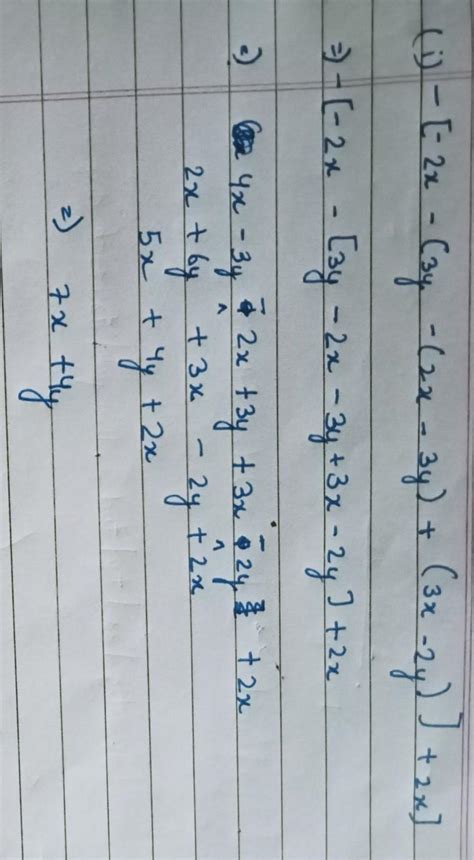 (i) - [-2x - (3y - (2x - 3y) + (3x - 2y)] + 2x]
=) - [-2x - [3y - 2x - 3y + 3x - 2y] + 2x
=) 4x - 3y - 2x + 3y + 3x - 2y + 2x
2x + 6y + 3x - 2y + 2x
5x + 4y + 2x
=) 7x + 4y